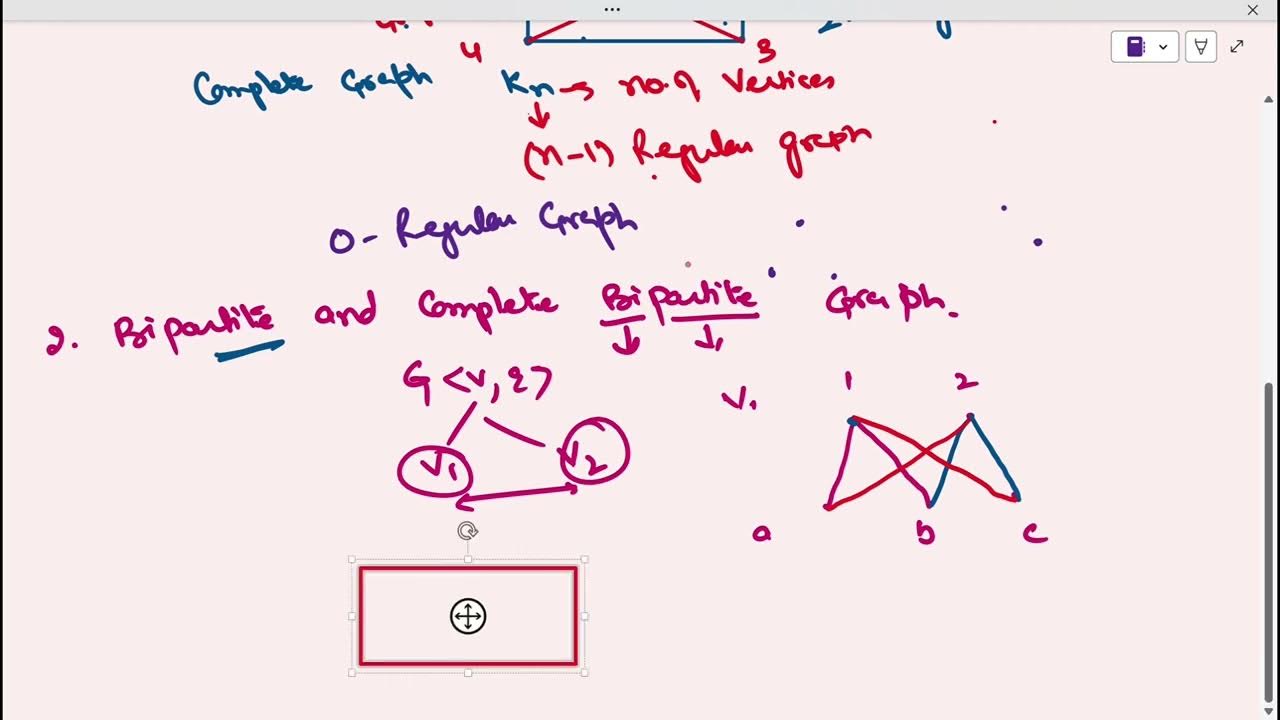 4 3
Complete Graph Kn → no. of Vertices
(n-1) Regular graph
0 - Regular Graph
2. Bipartite and Complete Bipartite Graph.
G <V, E>
V1 V2
V1 1 2
a b c